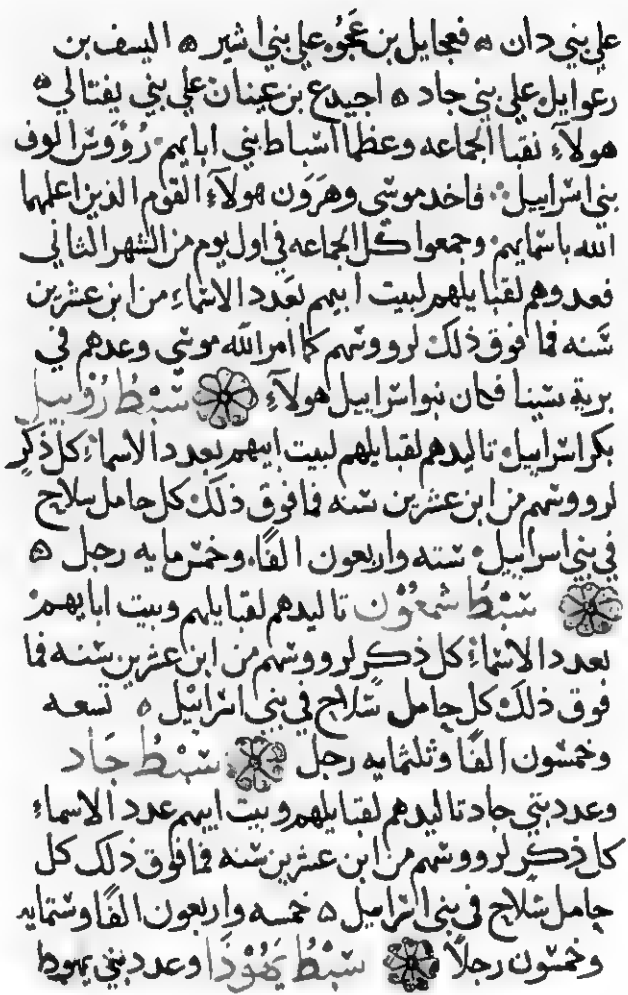 علي بني دان ۵ فعجايل بن عجو. علي بني اشير ۵ اليسف بن
رعوايل علي بني جاد ۵ اجيدع بن عينان علي بني يفتالي ۵
هولآء نقبا الجماعه وعظما اسباط بني ابايهم. رووس الوف
بني اسراييل ∴ فاخد موسي وهرون هولآء القوم الذين اعلمهما
الله باسمايهم. وجمعوا كل الجماعه في اول يوم من الشهر الثاني
فعدوهم لقبايلهم لبيت ابيهم بعدد الاسماء من ابن عشرين
سنه فما فوق ذلك لرووسهم كما امر الله موسي وعدهم في
برية سينا فكان بنوا اسراييل هولآء سبط روبيل
بكر اسراييل. تاليدهم لقبايلهم لبيت ابيهم بعدد الاسماء كل ذكر
لرووسهم من ابن عشرين سنه فما فوق ذلك كل حامل سلاح
في بني اسراييل. سته واربعون الفًا. وخمس مايه رجل ۵
سبط شمعون تاليدهم لقبايلهم وبيت ابايهم
بعدد الاسماء كل ذكر لرووسهم من ابن عشرين سنه فما
فوق ذلك كل حامل سلاح في بني اسراييل ۵ تسعه
وخمسون الفًا وثلثمايه رجل سبط جاد
وعدد بني جاد تاليدهم لقبايلهم وبيت ابيهم عدد الاسماء
كل ذكر لرووسهم من ابن عشرين سنه فما فوق ذلك كل
حامل سلاح في بني اسراييل ۵ خمسه واربعون الفًا وستمايه
وخمسون رجلاً سبط يهودا وعدد بني يهودا